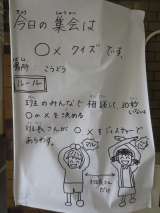 今日の集会は
○×クイズです。
ばしょ
場所 こうどう
ルール
班のみんなで相談して、30秒いないに
○か×を決める
班長さんが ○×をジェスチャーで
あらわす。
マル
班長さん
だけ